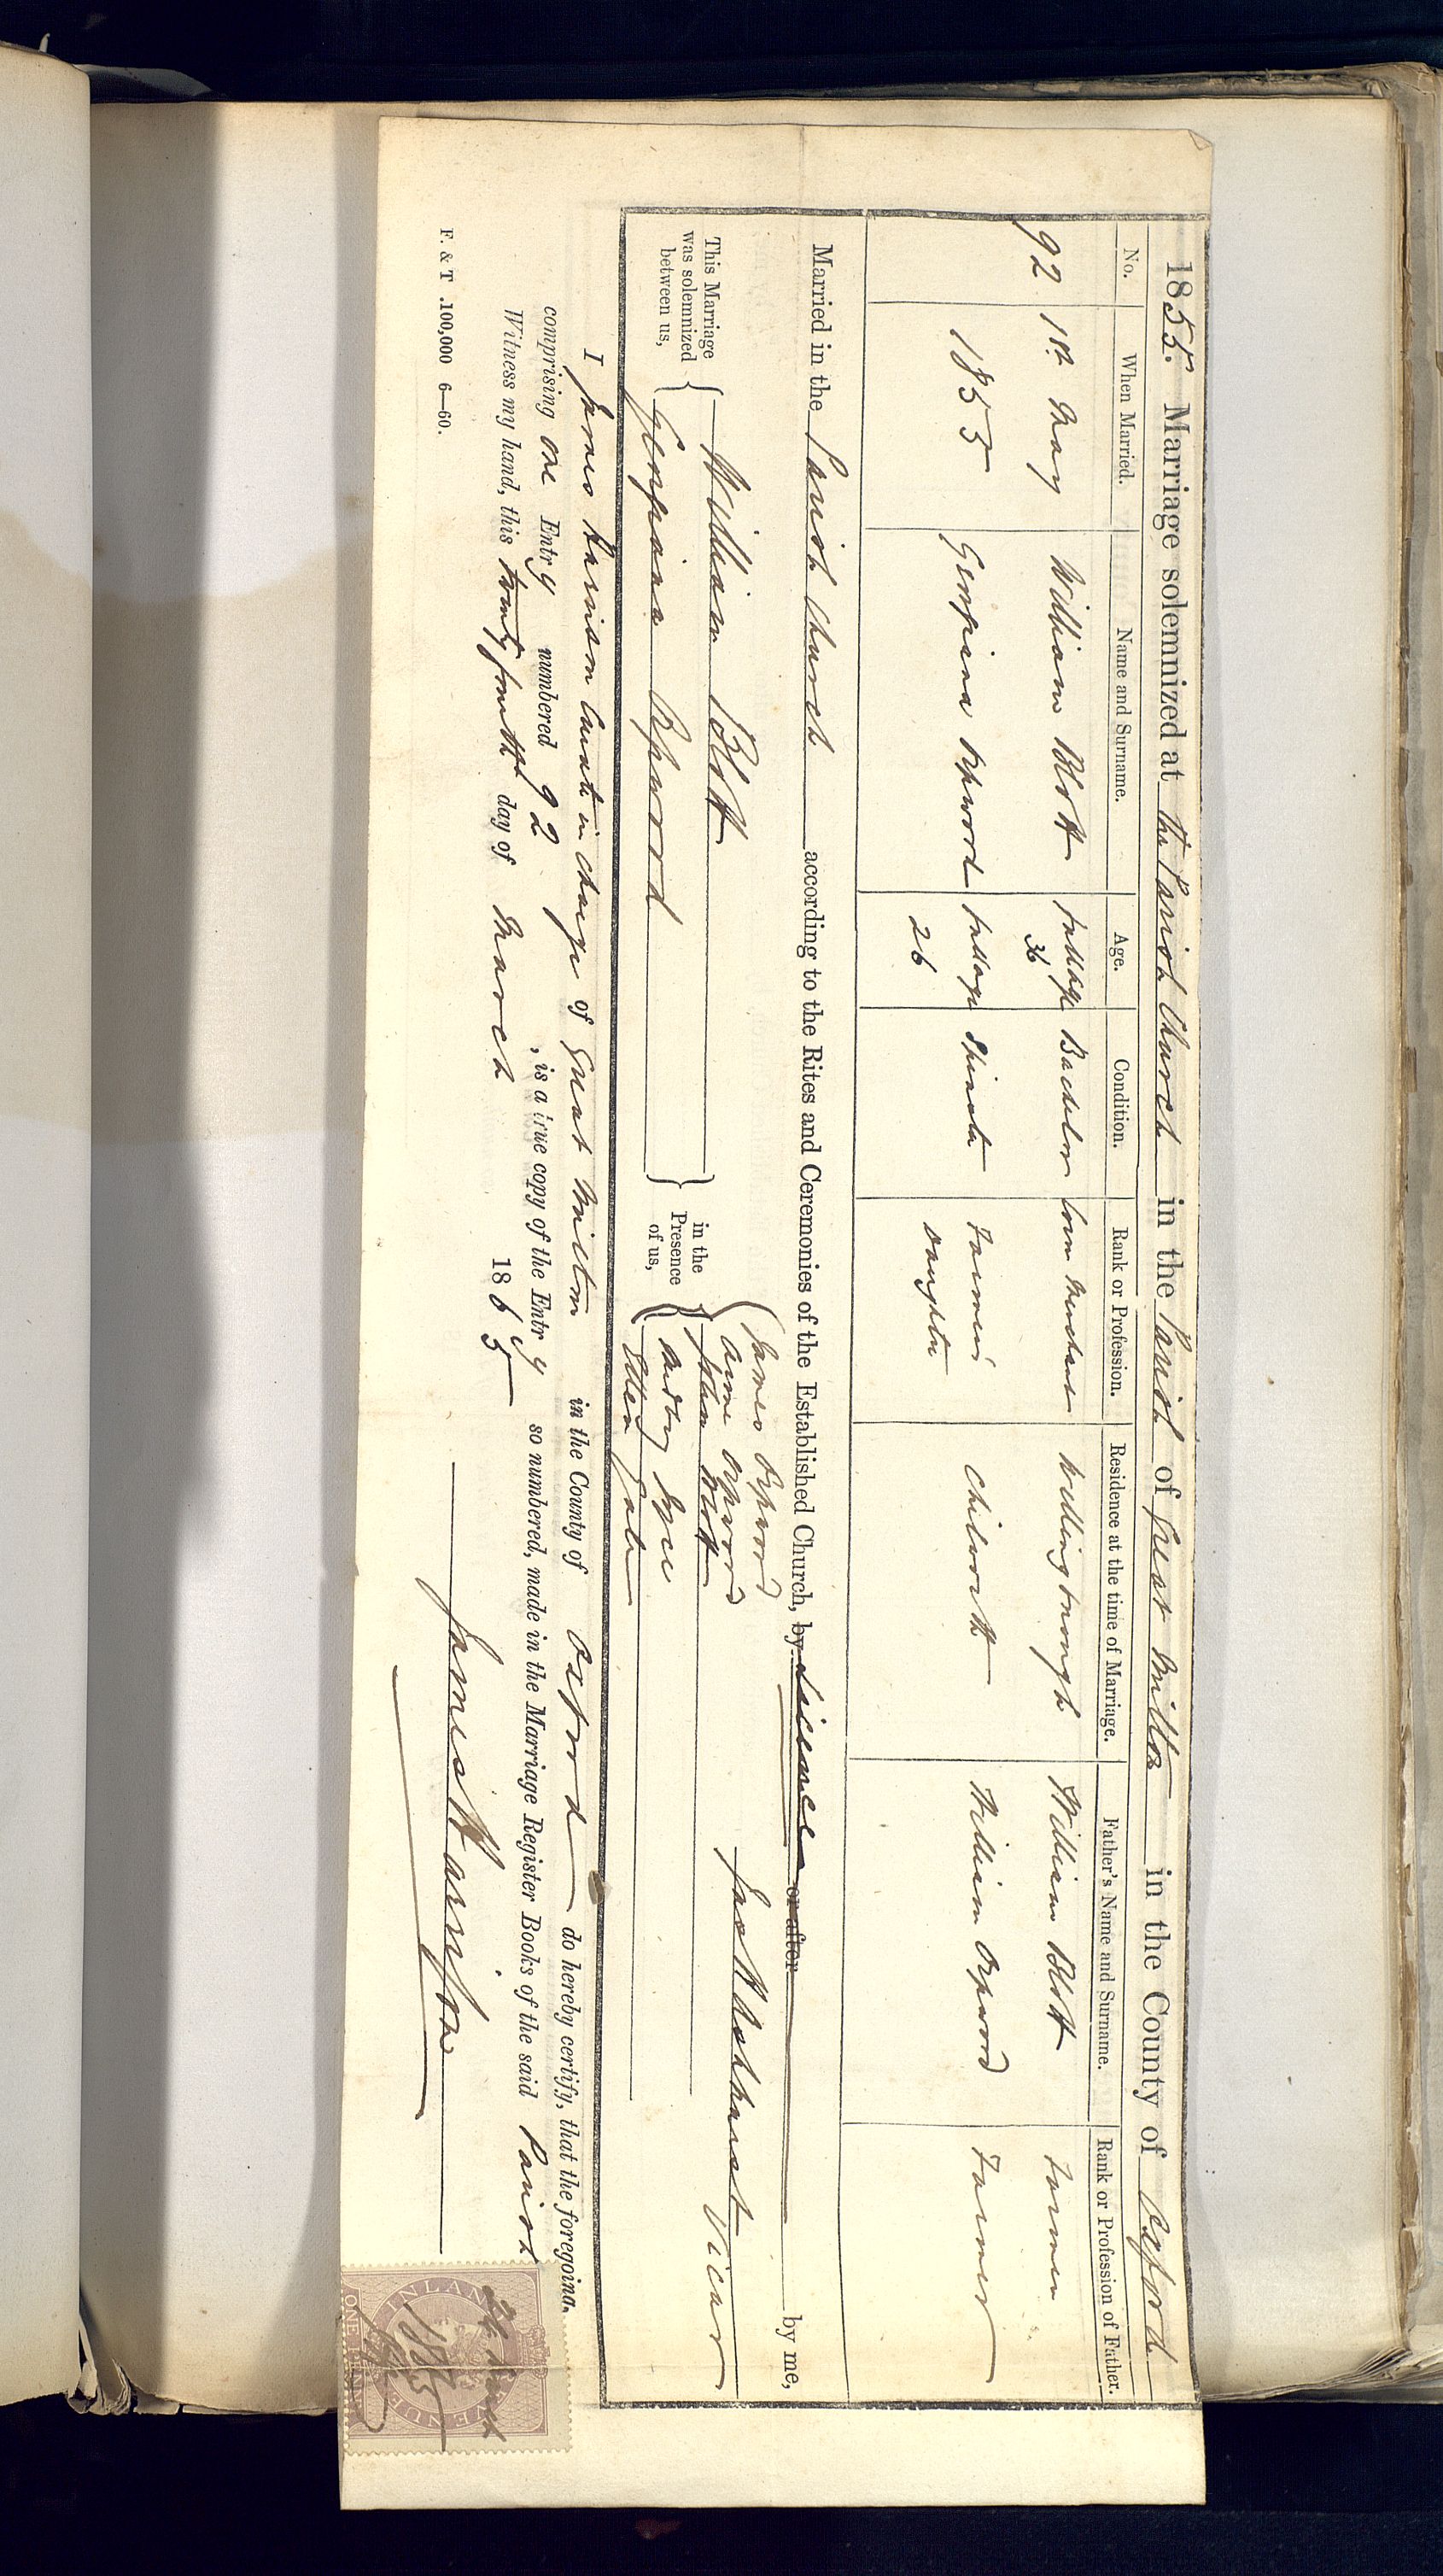 1855. Marriage solemnized at the Parish Church in the Parish of Great Milton in the County of Oxford
No. When Married. Name and Surname. Age. Condition. Rank or Profession. Residence at the time of Marriage. Father's Name and Surname. Rank or Profession of Father.
92 1st May William Blott full age Bachelor Corn Merchant William Blott Farmer
36
1855 Georgina Orpwood full age Spinster Farmer's Chilworth William Orpwood Farmer
26 Daughter
Married in the Parish Church according to the Rites and Ceremonies of the Established Church, by Licence or after by me,
James Orpwood
This Marriage was solemnized between us, William Blott in the Presence of us, Anne Orpwood Vicar
John Blott
Georgina Orpwood
Ellen
I James Harrison Curate in charge of Great Milton in the County of Oxford do hereby certify, that the foregoing,
comprising one Entry numbered 92, is a true copy of the Entry so numbered, made in the Marriage Register Books of the said Parish
Witness my hand, this twenty fourth day of March 1865
James Harrison
F. & T. 100,000 6—60.
INLAND REVENUE
ONE PENNY
24 March
1865